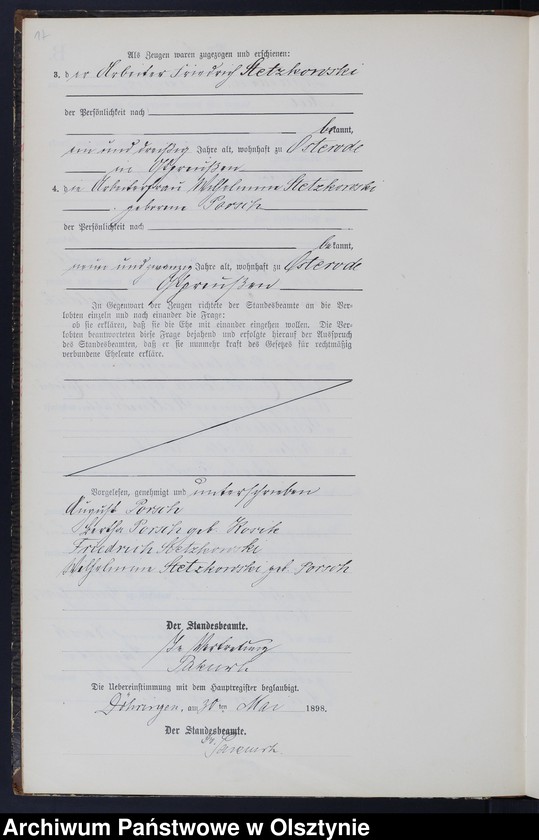 Als Zeugen waren zugezogen und erschienen:
3. der Arbeiter Friedrich Stetzkowski
der Persönlichkeit nach
bekannt,
ein und dreißig Jahre alt, wohnhaft zu Osterode
in Ostpreußen
4. die Arbeiterfrau Wilhelmine Stetzkowski
geborene Porsch
der Persönlichkeit nach
bekannt,
neun und zwanzig Jahre alt, wohnhaft zu Osterode
Ostpreußen
In Gegenwart der Zeugen richtete der Standesbeamte an die Ver-
lobten einzeln und nach einander die Frage:
ob sie erklären, daß sie die Ehe mit einander eingehen wollen. Die Ver-
lobten beantworteten diese Frage bejahend und erfolgte hierauf der Ausspruch
des Standesbeamten, daß er sie nunmehr kraft des Gesetzes für rechtmäßig
verbundene Eheleute erkläre.
Vorgelesen, genehmigt und unterschrieben
August Porsch
Bertha Porsch geb.
Friedrich Stetzkowski
Wilhelmine Stetzkowski geb. Porsch
Der Standesbeamte.
In Vertretung
Die Uebereinstimmung mit dem Hauptregister beglaubigt.
Döhringen, am 30ten Mai 1898.
Der Standesbeamte.
Archiwum Państwowe w Olsztynie